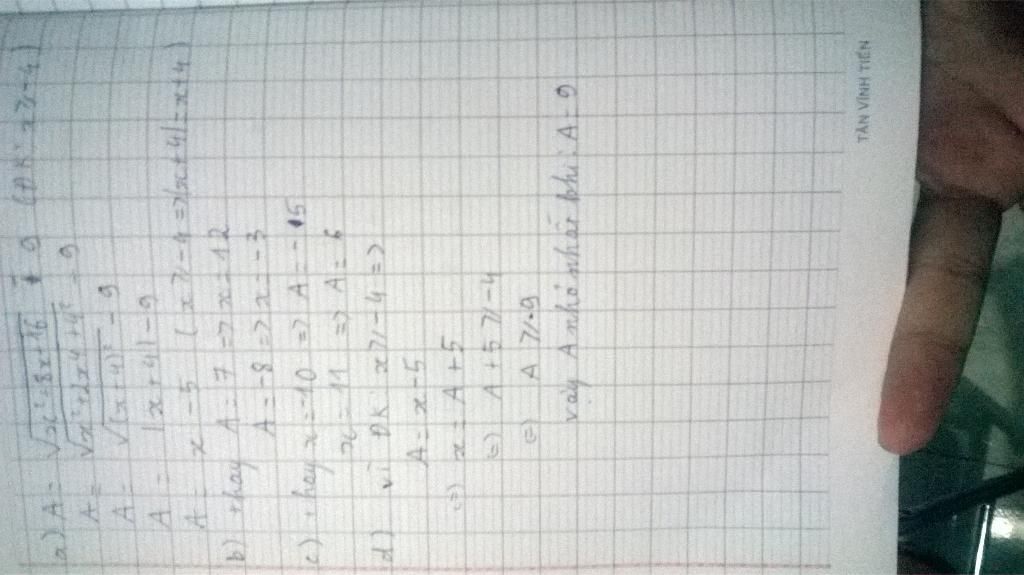 a) A = √x²+8x+16 - 9 (ĐK: x ≥ -4)
A = √x²+2x4+4² - 9
A = √(x+4)² - 9
A = |x+4| - 9
A = x - 5 (x ≥ -4 => |x+4| = x+4)
b) thay A = 7 => x = 12
A = -8 => x = -3
c) thay x = -10 => A = -15
x = 11 => A = 6
d) vì ĐK x ≥ -4 =>
A = x - 5
<=> x = A + 5
<=> A + 5 ≥ -4
<=> A ≥ -9
vậy A nhỏ nhất khi: A = 9
TÂN VĨNH TIẾN